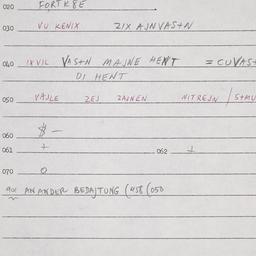 020 FORTRBE
030 VU KENIX ZIX AJNVAS+N
040 IXVIL VAS+N MAJNE HENT = CUVAS+
DI HENT
050 VAJLE ZEJ ZAJNEN NITREJN / S+MU
060 $ –
061 + 062 +
070 0
901 AN ANDER BEDAJTUNG (458 (050